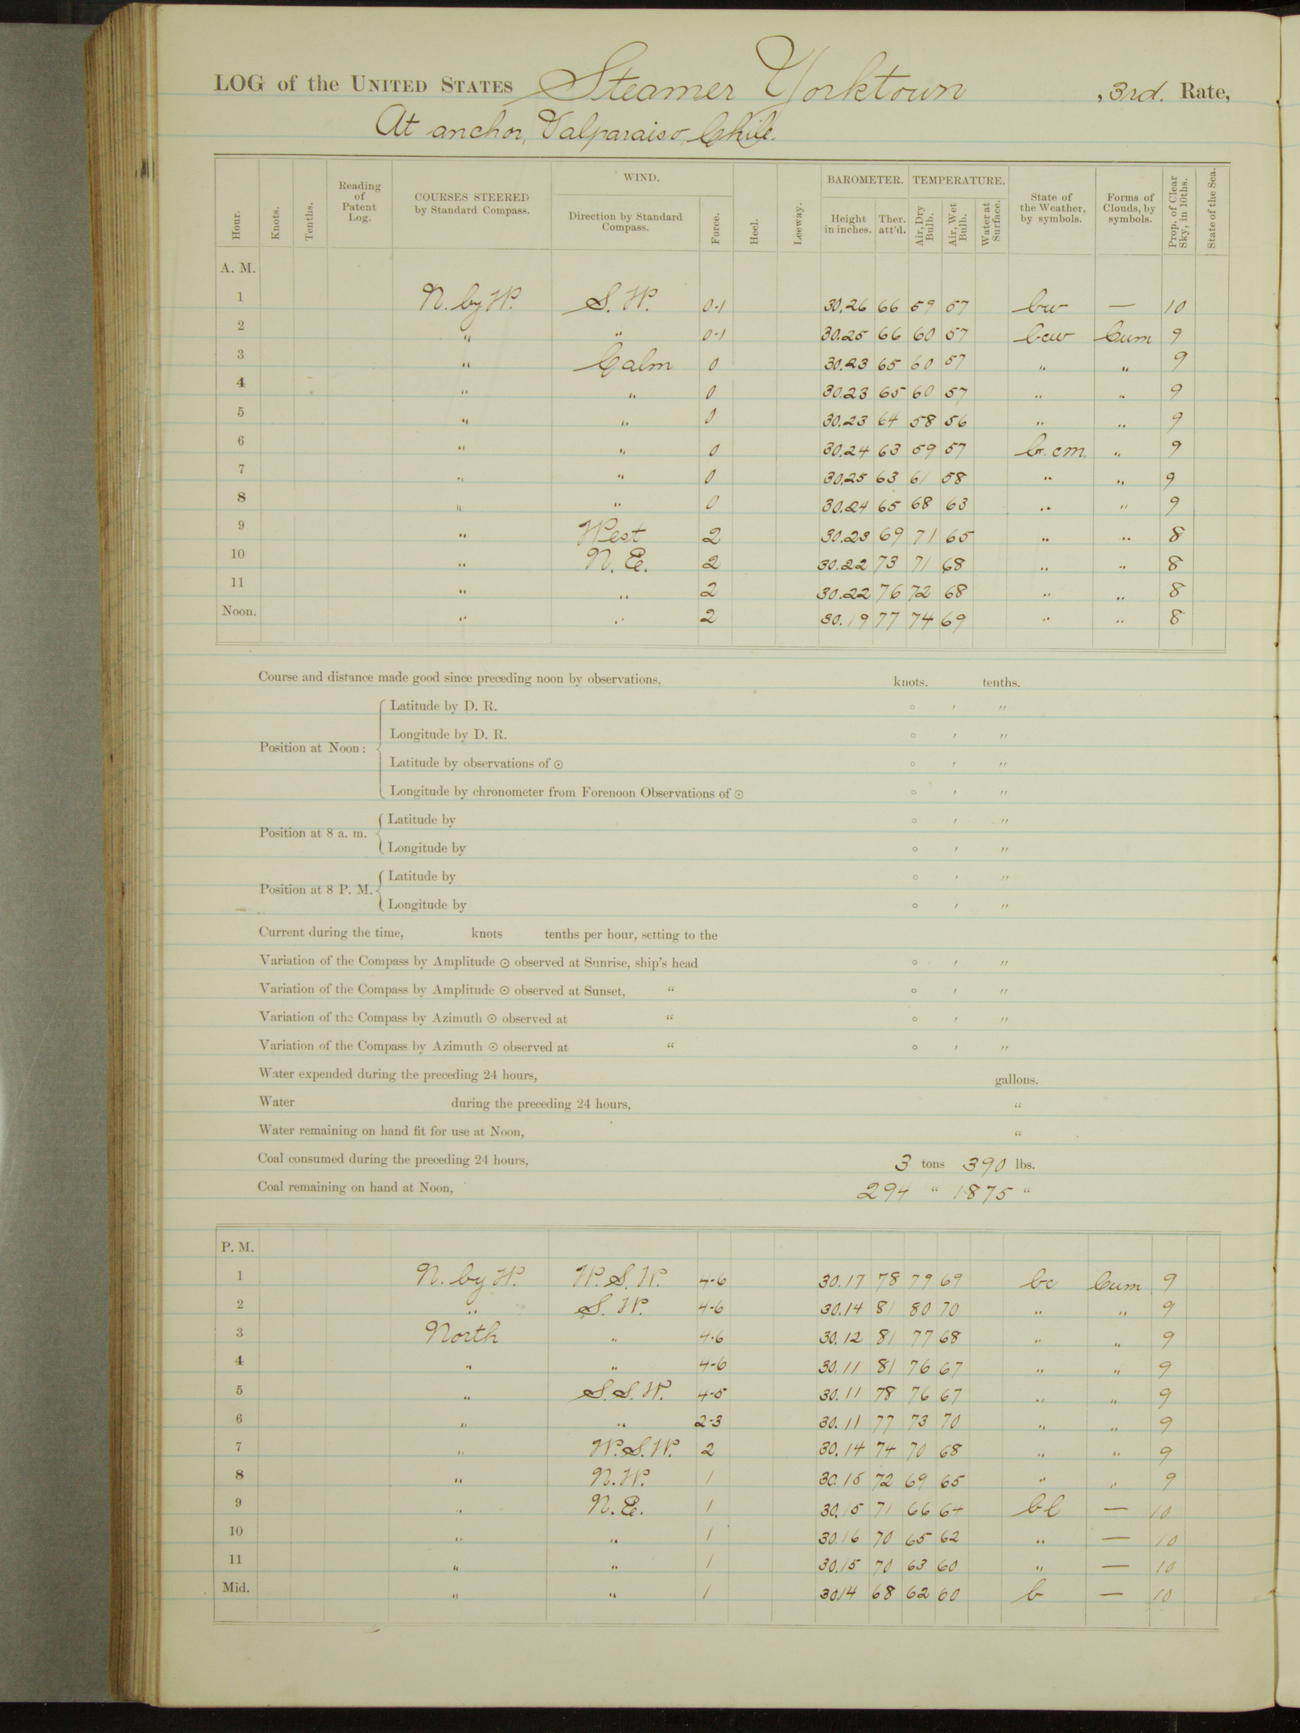 LOG of the UNITED STATES Steamer Yorktown, 3rd. Rate,
At anchor, Valparaiso, Chile.
Hour. Knots. Tenths. Reading of Patent Log. COURSES STEERED by Standard Compass. WIND. Direction by Standard Compass. Force. Heel. Leeway. BAROMETER. Height in inches. Ther. att'd. TEMPERATURE. Air, Dry Bulb. Air, Wet Bulb. Water at Surface. State of the Weather, by symbols. Forms of Clouds, by symbols. Prop. of Clear Sky, in 10ths. State of the Sea.
A. M.
1 N. by W. S. W. 0-1 30.26 66 59 57 bw — 10
2 " " 0-1 30.25 66 60 57 bcw Cum 9
3 " Calm 0 30.23 65 60 57 " " 9
4 " " 0 30.23 65 60 57 " " 9
5 " " 0 30.23 64 58 56 " " 9
6 " " 0 30.24 63 59 57 b.cm. " 9
7 " " 0 30.25 63 61 58 " " 9
8 " " 0 30.24 65 68 63 " " 9
9 " West 2 30.23 69 71 65 " " 8
10 " N. E. 2 30.22 73 71 68 " " 8
11 " " 2 30.22 76 72 68 " " 8
Noon. " " 2 30.19 77 74 69 " " 8
Course and distance made good since preceding noon by observations, knots. tenths.
Position at Noon:
Latitude by D. R. ° ′ ″
Longitude by D. R. ° ′ ″
Latitude by observations of ☉ ° ′ ″
Longitude by chronometer from Forenoon Observations of ☉ ° ′ ″
Position at 8 a. m.
Latitude by ° ′ ″
Longitude by ° ′ ″
Position at 8 P. M.
Latitude by ° ′ ″
Longitude by ° ′ ″
Current during the time, knots tenths per hour, setting to the
Variation of the Compass by Amplitude ☉ observed at Sunrise, ship's head ° ′ ″
Variation of the Compass by Amplitude ☉ observed at Sunset, " ° ′ ″
Variation of the Compass by Azimuth ☉ observed at " ° ′ ″
Variation of the Compass by Azimuth ☉ observed at " ° ′ ″
Water expended during the preceding 24 hours, gallons.
Water during the preceding 24 hours, "
Water remaining on hand fit for use at Noon, "
Coal consumed during the preceding 24 hours, 3 tons 390 lbs.
Coal remaining on hand at Noon, 294 " 1875 "
P. M.
1 N. by W. W. S. W. 4-6 30.17 78 79 69 bc Cum 9
2 " S. W. 4-6 30.14 81 80 70 " " 9
3 North " 4-6 30.12 81 77 68 " " 9
4 " " 4-6 30.11 81 76 67 " " 9
5 " S. S. W. 4-5 30.11 78 76 67 " " 9
6 " " 2-3 30.11 77 73 70 " " 9
7 " W. S. W. 2 30.14 74 70 68 " " 9
8 " N. W. 1 30.15 72 69 65 " " 9
9 " N. E. 1 30.15 71 66 64 bl — 10
10 " " 1 30.16 70 65 62 " — 10
11 " " 1 30.15 70 63 60 " — 10
Mid. " " 1 30.14 68 62 60 b — 10